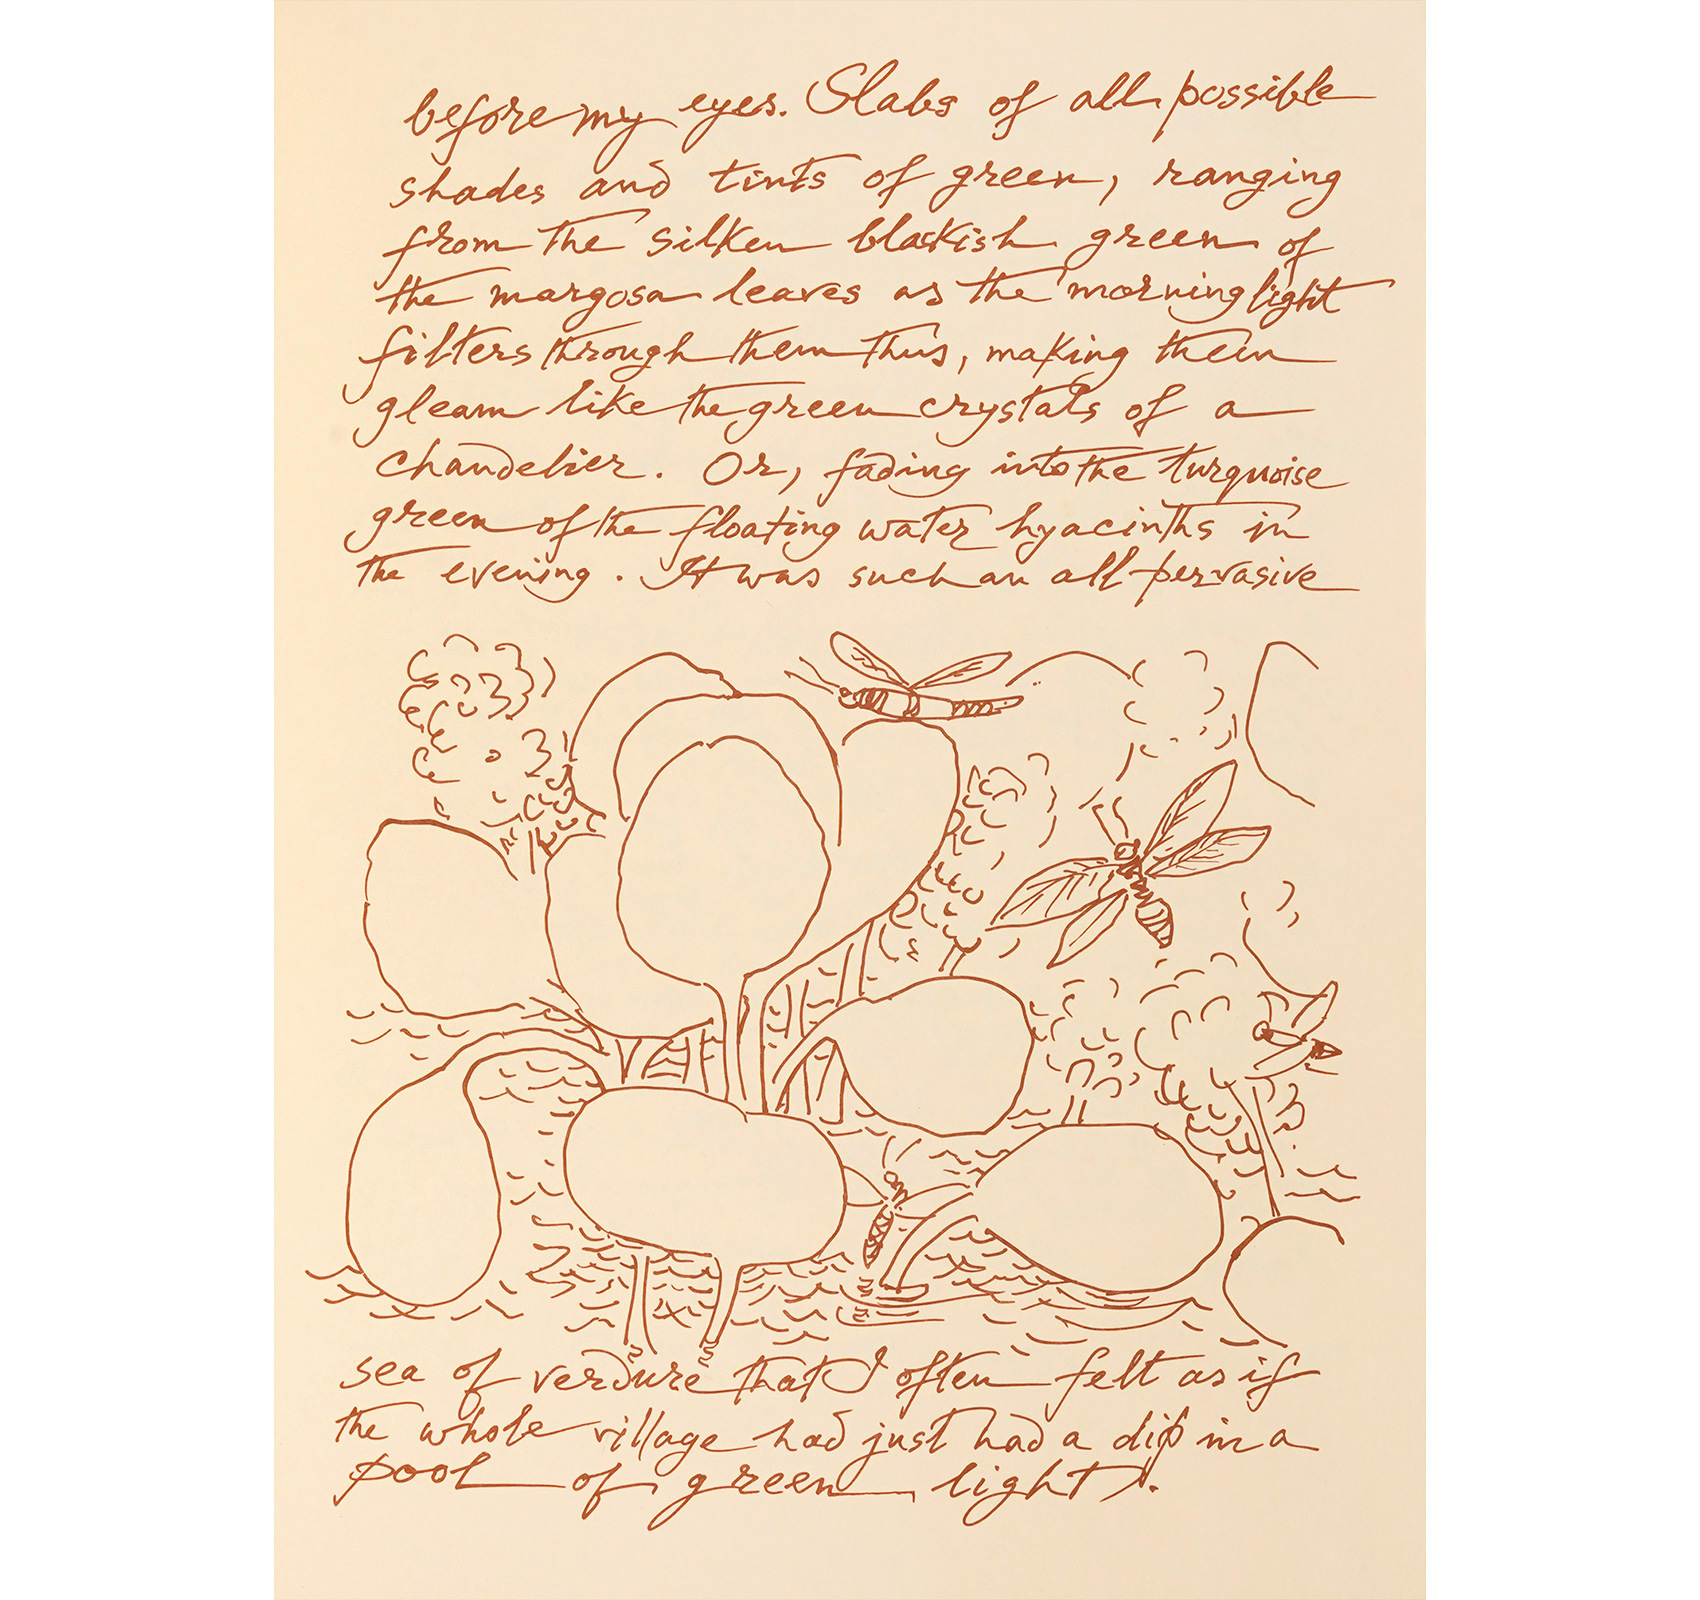 before my eyes. Slabs of all possible
shades and tints of green, ranging
from the silken blackish green of
the margosa leaves as the morning light
filters through them thus, making them
gleam like the green crystals of a
chandelier. Or, fading into the turquoise
green of the floating water hyacinths in
the evening. It was such an all pervasive
sea of verdure that I often felt as if
the whole village had just had a dip in a
pool of green light.